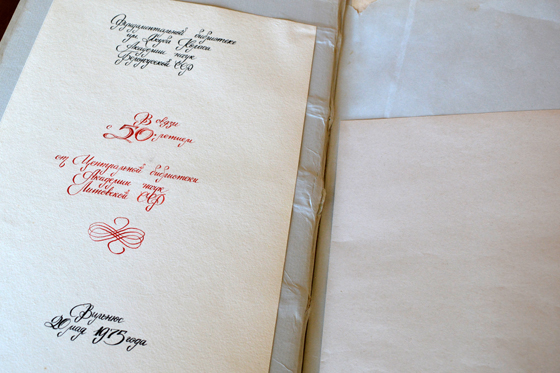 Фундаментальной библиотеке
им. Якуба Коласа
Академии наук
Белорусской ССР
В связи
с 50-летием
от Центральной библиотеки
Академии наук
Литовской ССР
Вильнюс
20 мая 1975 года